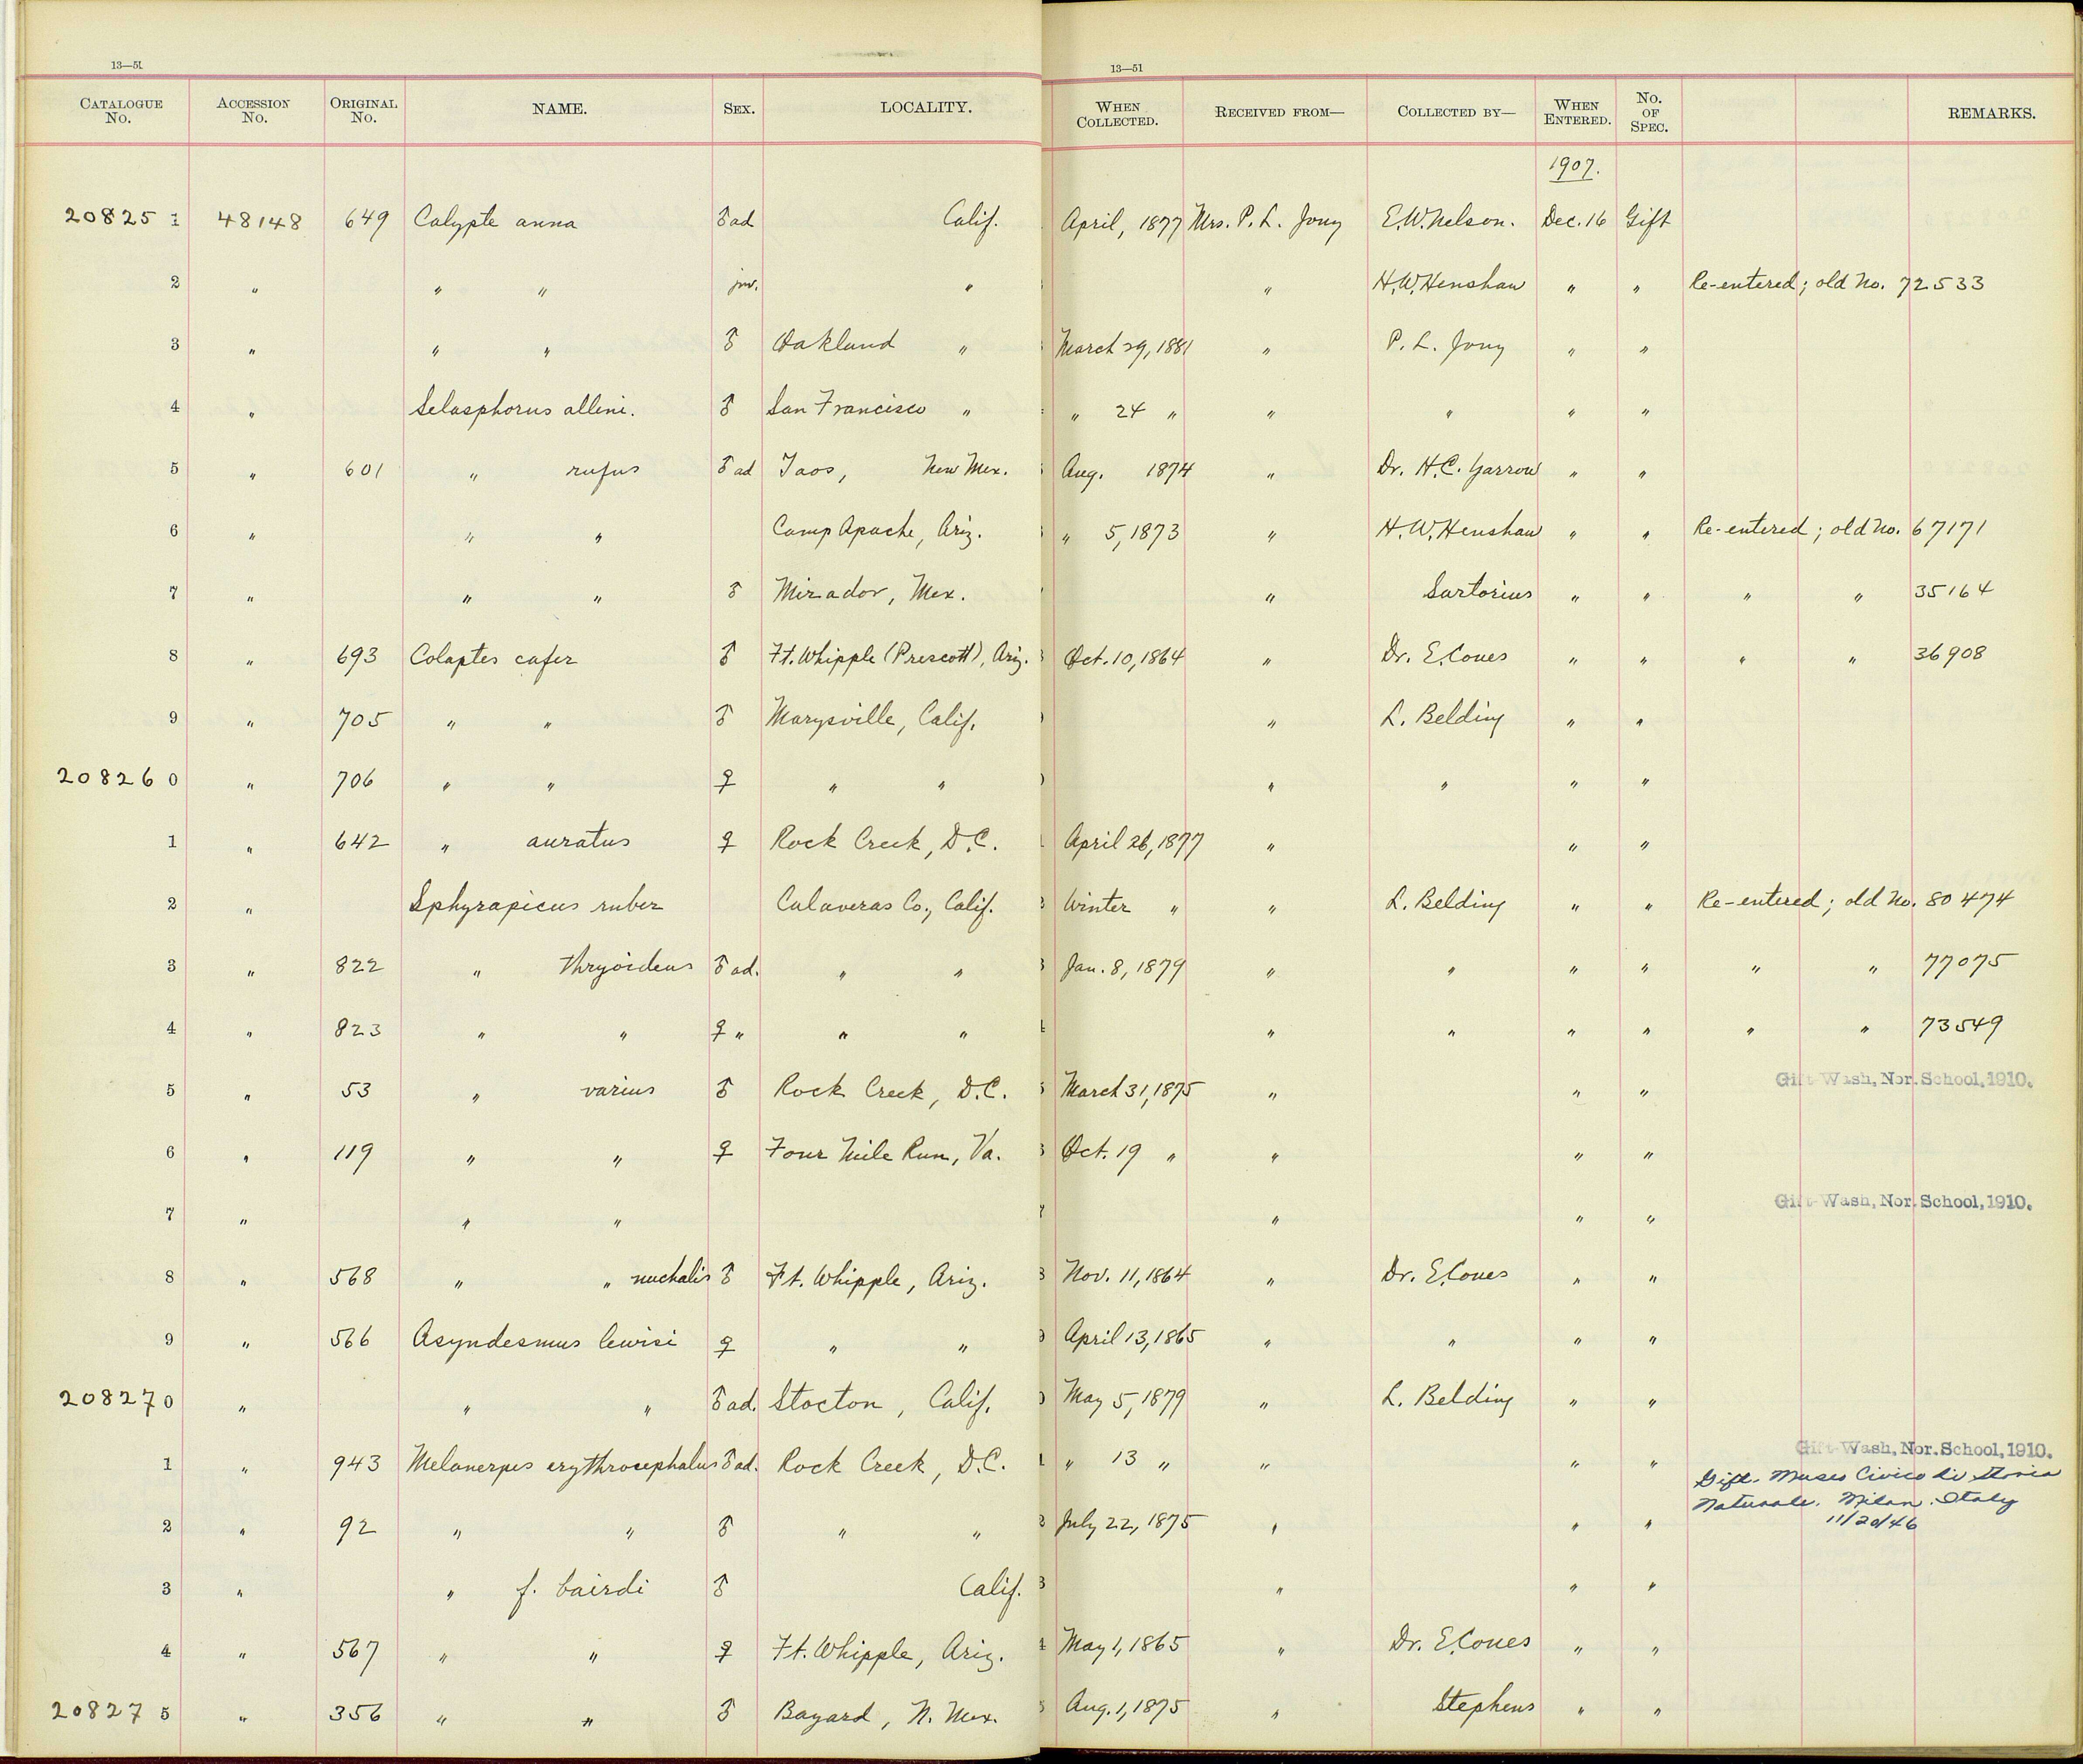 13—51 13—51
CATALOGUE No. ACCESSION No. ORIGINAL No. NAME. SEX. LOCALITY. WHEN COLLECTED. RECEIVED FROM— COLLECTED BY— WHEN ENTERED. No. OF SPEC. REMARKS.
1907.
20825 1 48148 649 Calypte anna ♂ ad Calif. April, 1877 Mrs. P. L. Jouy E.W. Nelson. Dec. 16 Gift
2 " " " juv. " " H.W. Henshaw " " Re-entered; old No. 72533
3 " " " ♂ Oakland " March 29, 1881 " P. L. Jouy " "
4 " Selasphorus alleni. ♂ San Francisco " " 24 " " " " "
5 " 601 " rufus ♂ ad Taos, New Mex. Aug. 1874 " Dr. H.C. Yarrow " "
6 " " " Camp Apache, Ariz. " 5, 1873 " H.W. Henshaw " " Re-entered; old No. 67171
7 " " " ♂ Mirador, Mex. " Sartorius " " " " 35164
8 " 693 Colaptes cafer ♂ Ft. Whipple (Prescott), Ariz. Oct. 10, 1864 " Dr. E. Coues " " " " 36908
9 " 705 " " ♂ Marysville, Calif. " L. Belding " "
20826 0 " 706 " " ♀ " " " " " "
1 " 642 " auratus ♀ Rock Creek, D.C. April 26, 1877 " " "
2 " Sphyrapicus ruber Calaveras Co., Calif. Winter " " L. Belding " " Re-entered; old No. 80474
3 " 822 " thryoideus ♂ ad. " " Jan. 8, 1879 " " " " " " 77075
4 " 823 " " ♀ " " " " " " " " " 73549
5 " 53 " varius ♂ Rock Creek, D.C. March 31, 1875 " " " Gift-Wash, Nor. School, 1910.
6 " 119 " " ♀ Four Mile Run, Va. Oct. 19 " " " "
7 " " " " " " Gift-Wash, Nor. School, 1910.
8 " 568 " " nuchalis ♂ Ft. Whipple, Ariz. Nov. 11, 1864 " Dr. E. Coues " "
9 " 566 Asyndesmus lewisi ♀ " " April 13, 1865 " " " "
20827 0 " " " ♂ ad. Stocton, Calif. May 5, 1879 " L. Belding " "
1 " 943 Melanerpes erythrocephalus ♂ ad. Rock Creek, D.C. " 13 " " " " Gift-Wash, Nor. School, 1910.
Gift. Museo Civico di Storia
Naturale. Milan. Italy
11/20/46
2 " 92 " " ♂ " " July 22, 1875 " " "
3 " " f. bairdi ♂ Calif. " " "
4 " 567 " " ♀ Ft. Whipple, Ariz. May 1, 1865 " Dr. E. Coues " "
20827 5 " 356 " " ♂ Bayard, N. Mex. Aug. 1, 1875 " Stephens " "